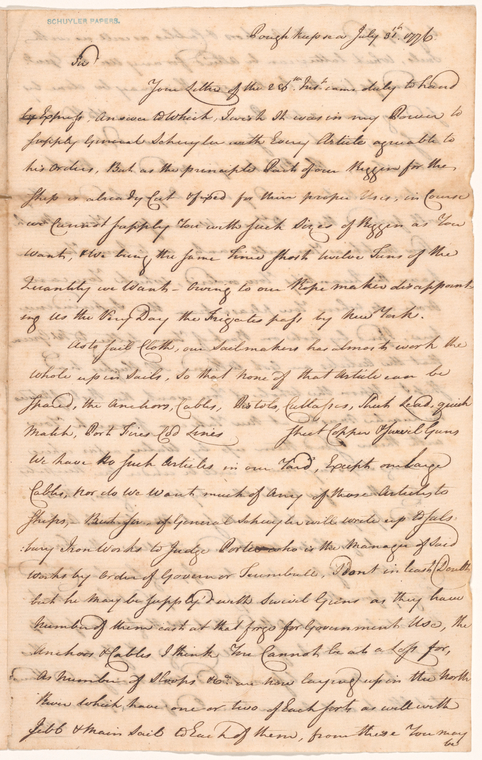 SCHUYLER PAPERS.
Poughkeepsie July 31th 1776
Sir
Your Letter of the 28th Inst came duly to hand
Express, answer Which, I wish It was in my Power to
supply General Schuyler with Every Article agreable to
his Orders, But as the principle Part of our Riggen for the
Ship is already Cut & for their proper Uses, in Course
we Cannot supply You with such Sizes of Riggen as You
Want, & We being the same time short twelve Tuns of the
Quantity we Want - Owing to our Rope maker disappoint
ing us the Very Day the Frigates pass by New York.
As to Sail Cloth, our Sailmakers has almost work the
whole up in Sails, so that none of that Article can be
spared, the Anchors, Cables, Pistols, Cutlasses, Sheet Lead, quick
Match, Port Fires Cod Lines Sheet Copper & Swivel Guns
We have No such Articles in our Yard, Except one Large
Cable, nor do we Want much of Any of those Articles to
Ships, But if General Schuyler will write up to Sals
bury Iron Works to Judge Porter who is the Manager of Said
Works by Order of Governor Trumbull, I Dont in least Doubt
but he may be supply'd with Swivel Guns as they have
Number of them cast at that forge for Government Use, the
Anchors & Cables I think You Cannot be at a Loss for,
As Number of Sloops &c. are now laying up in the North
River which have one or two of Each sorts as well with
Jibb & Main Sail to Each of them, from these You may
be